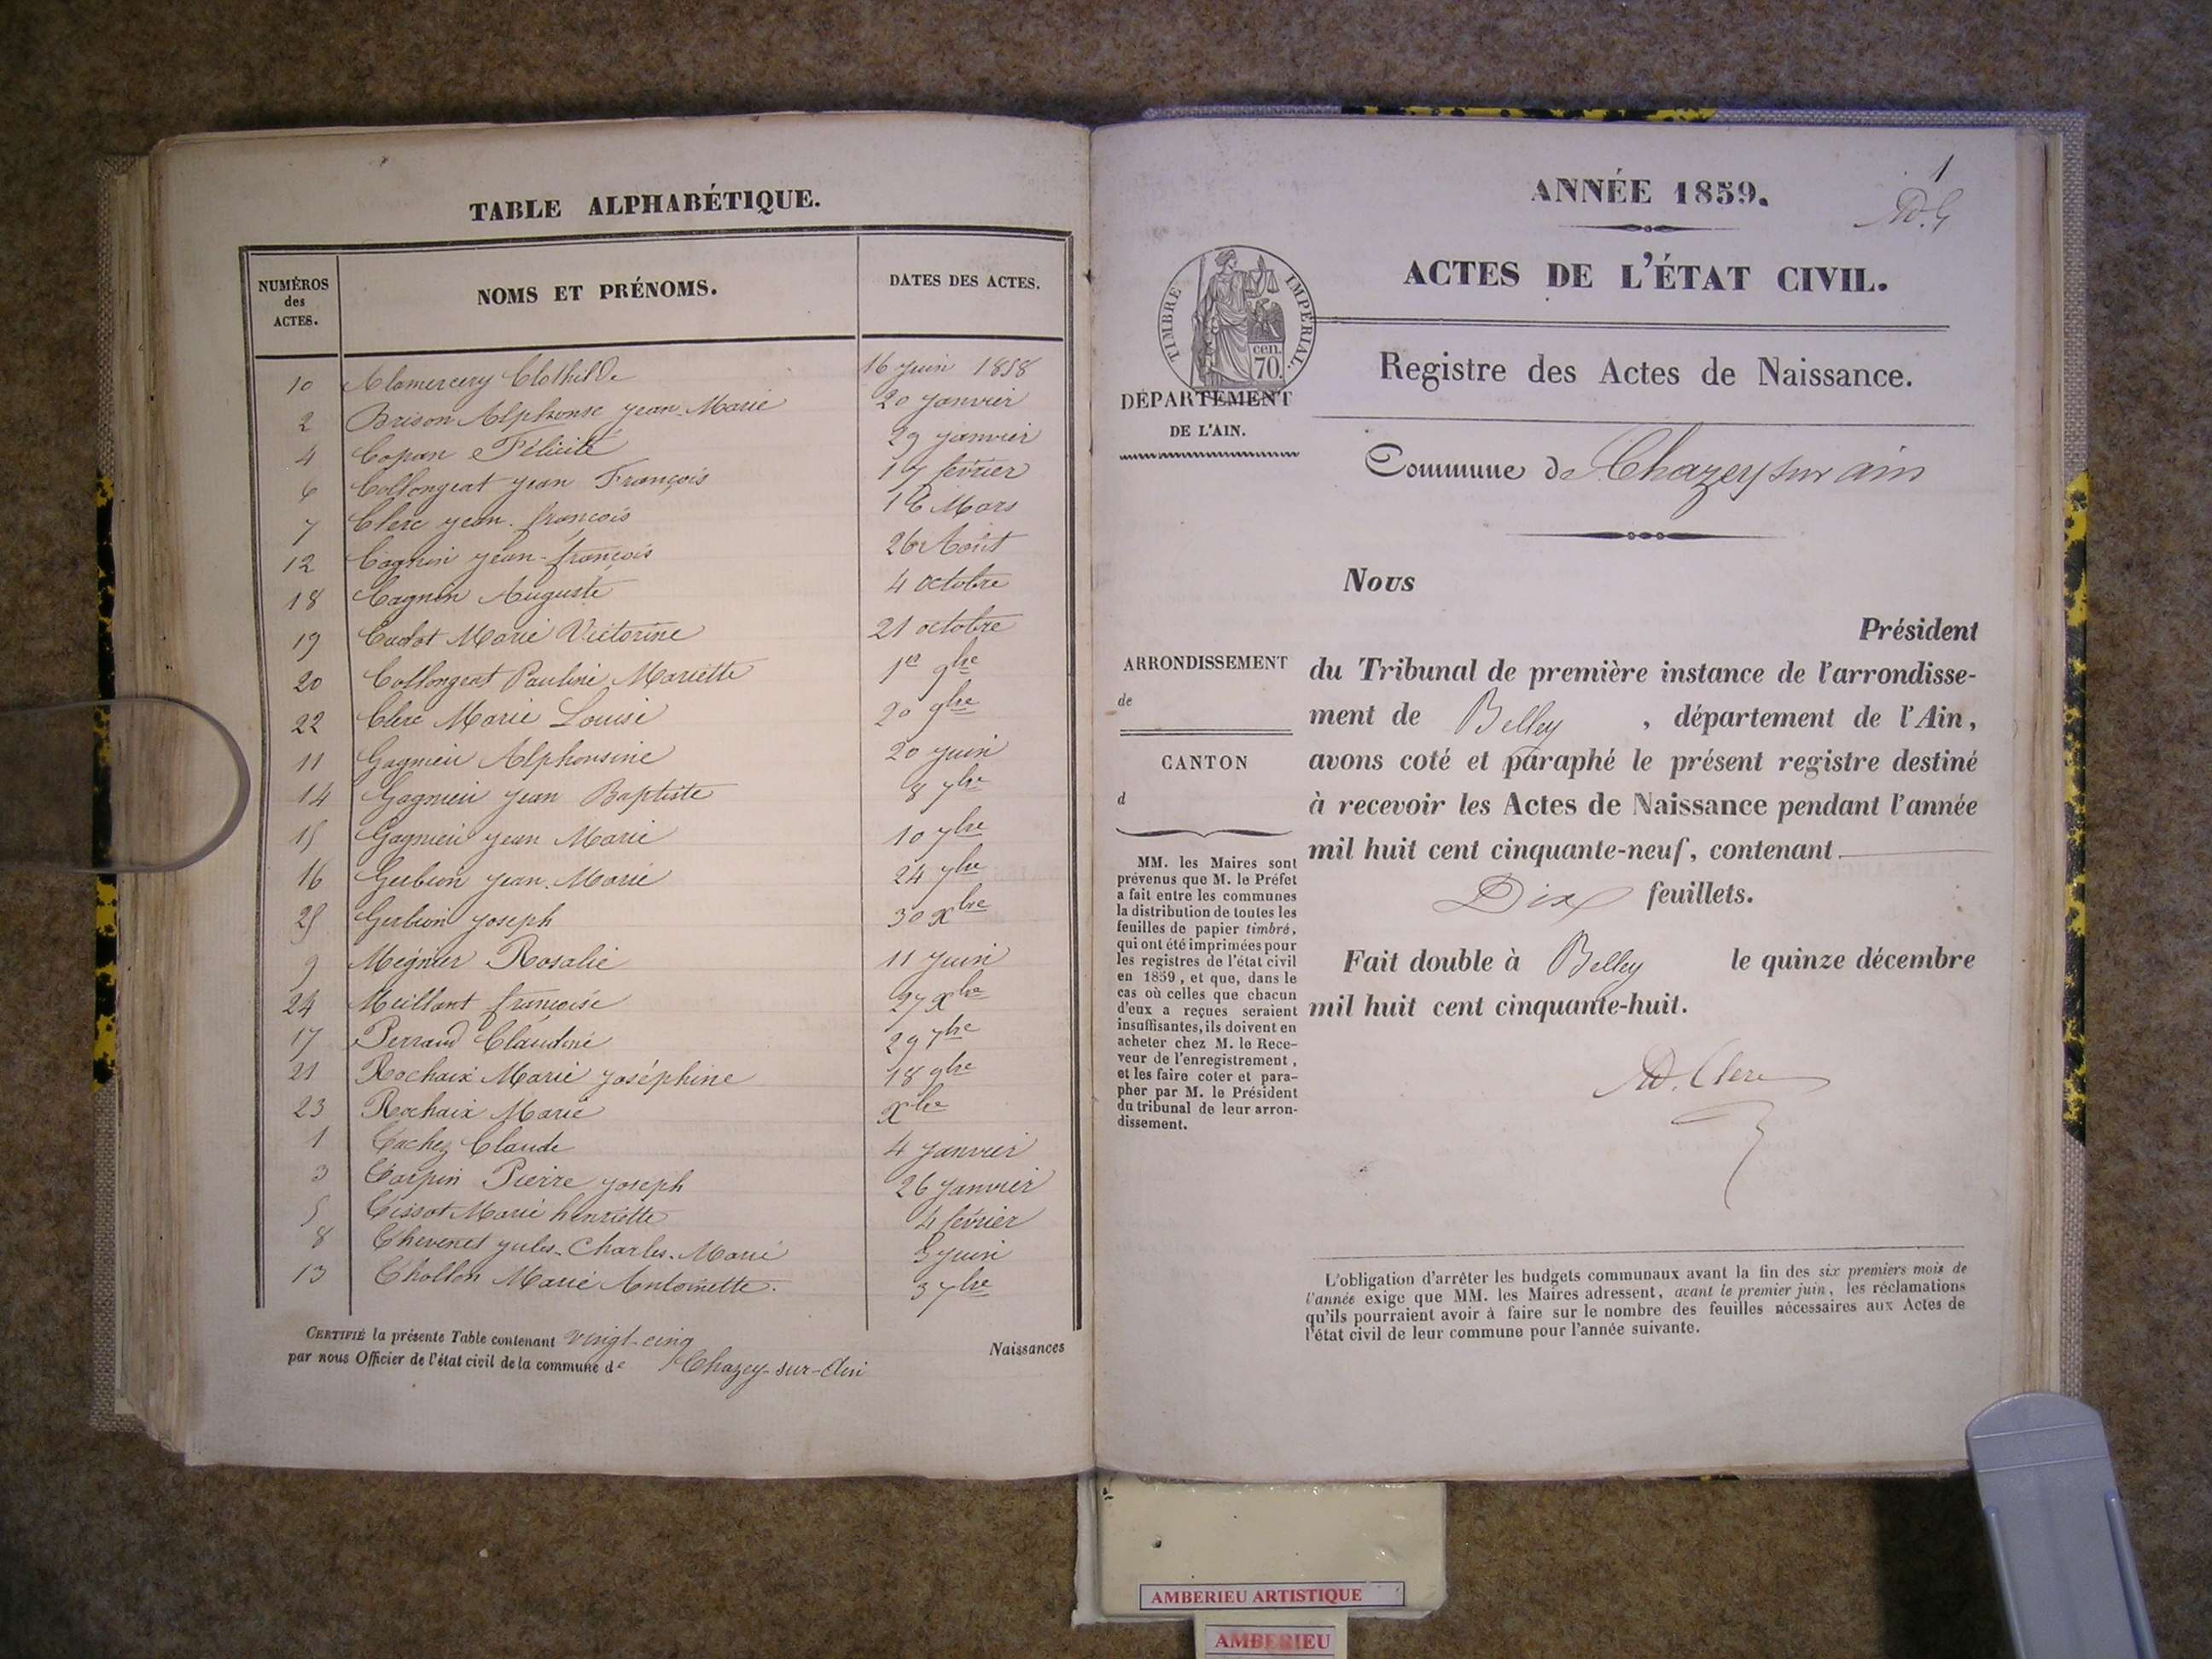 TABLE ALPHABÉTIQUE.
NUMÉROS des ACTES. NOMS ET PRÉNOMS. DATES DES ACTES.
10 Alamercery Clothilde 16 Juin 1858
2 Brison Alphonse Jean-Marie 20 Janvier
4 Copan Félicité 29 Janvier
6 Collongeat Jean François 17 février
7 Clerc Jean-françois 16 Mars
12 Cagnin Jean-françois 26 Août
18 Cagnin Auguste 4 octobre
19 Cadot Marie Victorine 21 octobre
20 Collongeat Pauline Mariette 1er 9bre
22 Clerc Marie Louise 20 9bre
11 Gagnieu Alphonsine 20 Juin
14 Gagnieu Jean Baptiste 8 7bre
15 Gagnieu Jean Marie 10 7bre
16 Gerbion Jean Marie 24 7bre
25 Gerbion Joseph 30 Xbre
9 Mégnier Rosalie 11 Juin
24 Meillant françoise 27 Xbre
17 Perraud Claudine 29 7bre
21 Rochaix Marie Joséphine 18 9bre
23 Rochaix Marie Xbre
1 Cachez Claude 4 Janvier
3 Carpin Pierre Joseph 26 Janvier
5 Tissot Marie henriette 4 février
8 Thevenet Jules-Charles-Marie 3 Juin
13 Thollon Marie Antoinette. 3 7bre
CERTIFIÉ la présente Table contenant vingt-cinq Naissances
par nous Officier de l'état civil de la commune de Chazey-sur-Ain
1
AD. C
ANNÉE 1859.
ACTES DE L'ÉTAT CIVIL.
TIMBRE IMPERIAL.
cen.
70.
DÉPARTEMENT
DE L'AIN.
Registre des Actes de Naissance.
Commune de Chazey sur ain
ARRONDISSEMENT
de
CANTON
d
MM. les Maires sont
prévenus que M. le Préfet
a fait entre les communes
la distribution de toutes les
feuilles de papier timbré,
qui ont été imprimées pour
les registres de l'état civil
en 1859, et que, dans le
cas où celles que chacun
d'eux a reçues seraient
insuffisantes, ils doivent en
acheter chez M. le Rece-
veur de l'enregistrement,
et les faire coter et para-
pher par M. le Président
du tribunal de leur arron-
dissement.
Nous
Président
du Tribunal de première instance de l'arrondisse-
ment de Belley , département de l'Ain,
avons coté et paraphé le présent registre destiné
à recevoir les Actes de Naissance pendant l'année
mil huit cent cinquante-neuf, contenant
Dix feuillets.
Fait double à Belley le quinze décembre
mil huit cent cinquante-huit.
AD. Clerc
L'obligation d'arrêter les budgets communaux avant la fin des six premiers mois de
l'année exige que MM. les Maires adressent, avant le premier juin, les réclamations
qu'ils pourraient avoir à faire sur le nombre des feuilles nécessaires aux Actes de
l'état civil de leur commune pour l'année suivante.
AMBERIEU ARTISTIQUE
AMBERIEU